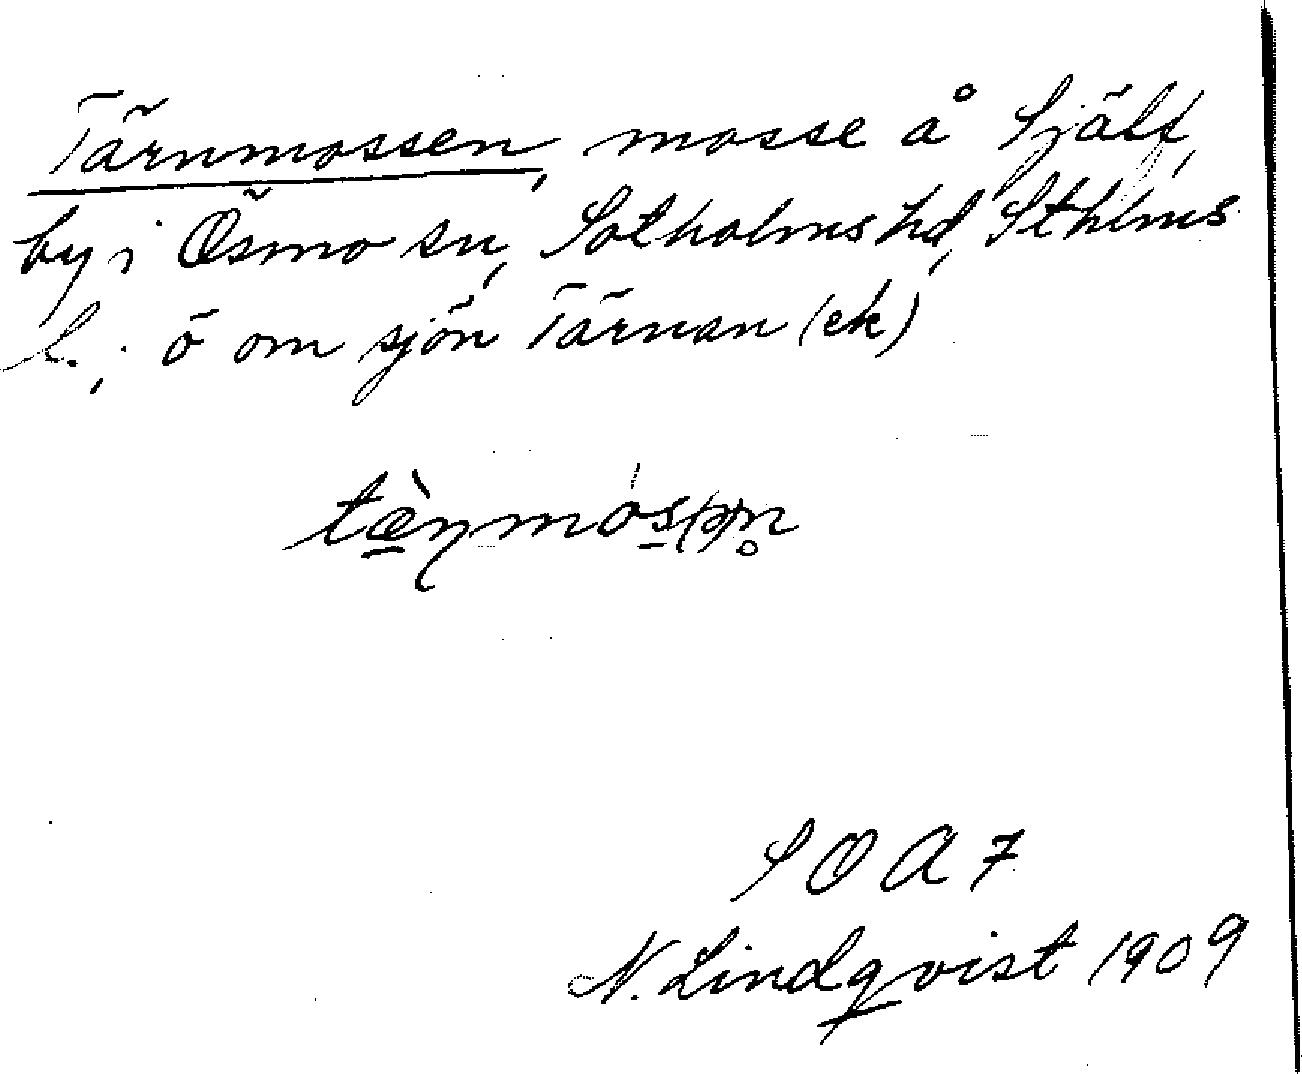 Tärnmossen, mosse å Själf,
by i Ösmo sn, Sotholms hd, Sthlms
l., ö om sjön Tärnan (ek)
SOA 7
N. Lindqvist 1909